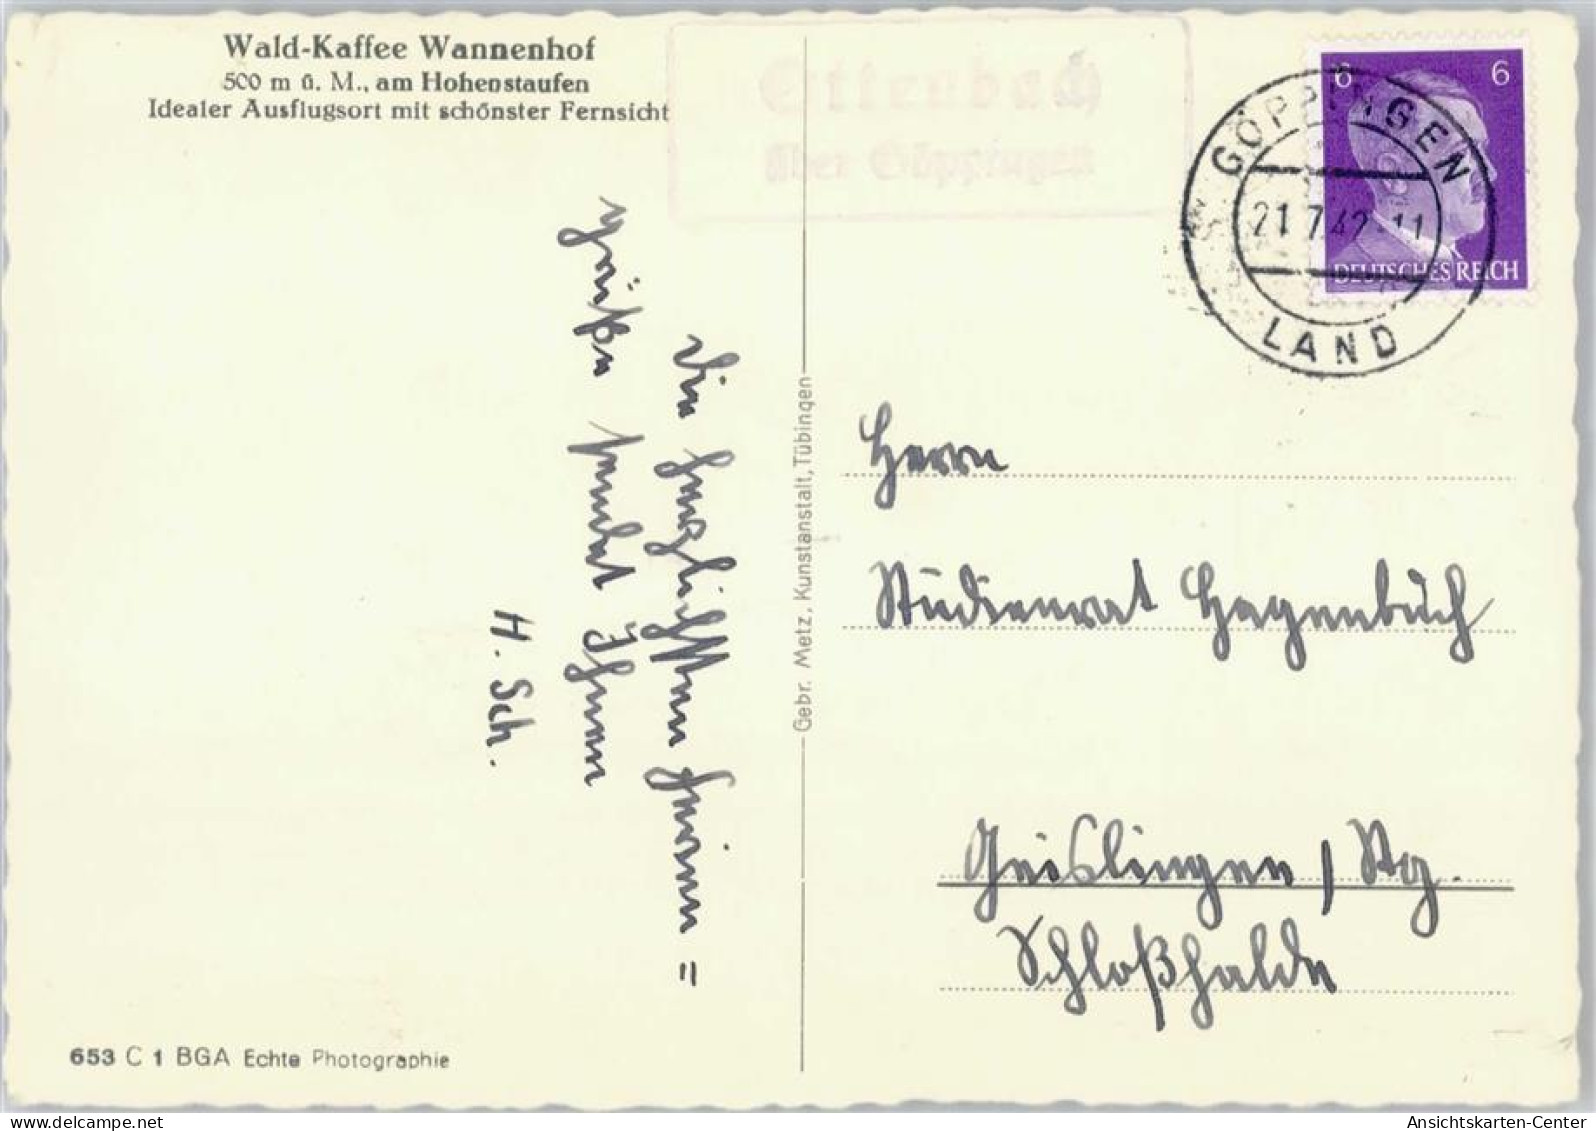 Wald-Kaffee Wannenhof
500 m ü. M., am Hohenstaufen
Idealer Ausflugsort mit schönster Fernsicht
Ottenbach
über Göppingen
6 6
DEUTSCHES REICH
GÖPPINGEN
21.7.42-11
LAND
Die herzlichsten Ferien=
grüße sendet Ihnen
H. Sch.
Gebr. Metz, Kunstanstalt, Tübingen
Herrn
Studienrat Hagenbuch
Geislingen / Stg.
Schloßhalde
653 C 1 BGA Echte Photographie
Ansichtskarten-Center